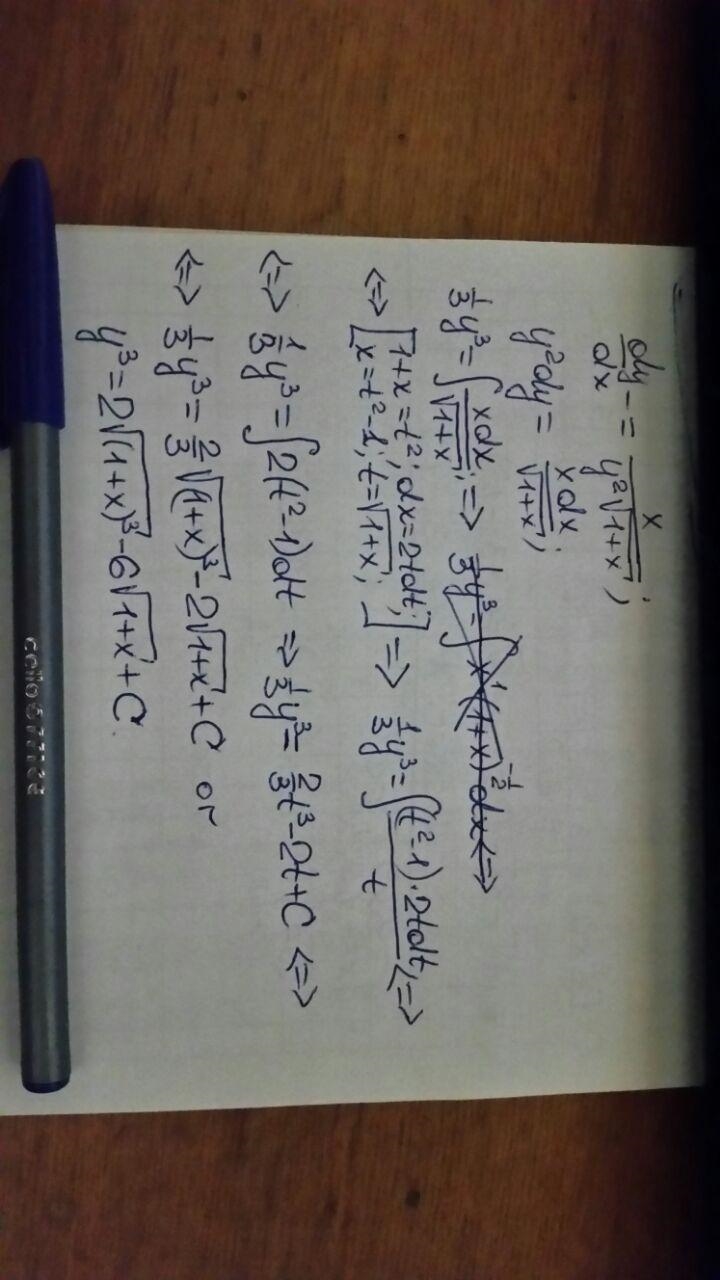 dy/dx = x/(y²√(1+x));
y²dy = xdx/√(1+x);
1/3 y³ = ∫ xdx/√(1+x); => 1/3 y³ = ∫ x¹(1+x)^(-1/2) dx <=>
<=> [1+x=t²; dx=2tdt; x=t²-1; t=√(1+x);] => 1/3 y³ = ∫ (t²-1)·2tdt/t; <=>
<=> 1/3 y³ = ∫ 2(t²-1)dt => 1/3 y³ = 2/3 t³ - 2t + C <=>
<=> 1/3 y³ = 2/3 √(1+x)³ - 2√(1+x) + C or
y³ = 2√(1+x)³ - 6√(1+x) + C.
cello